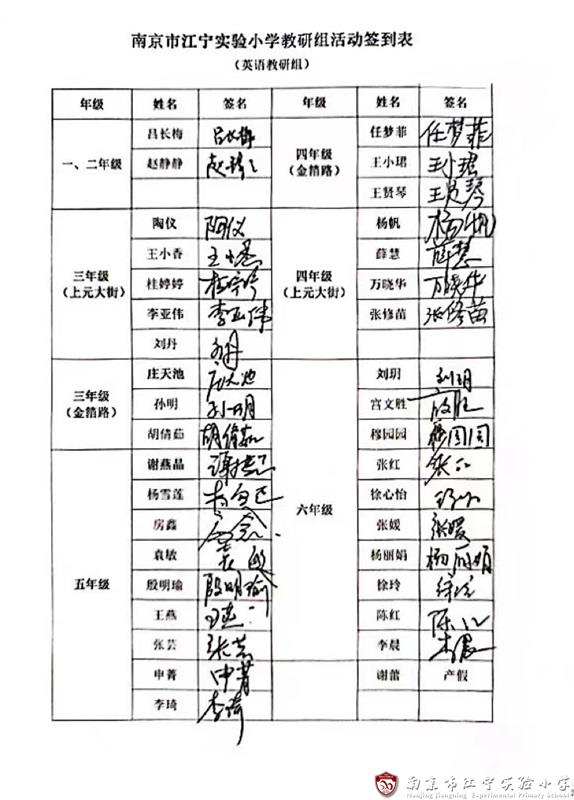 南京市江宁实验小学教研组活动签到表
（英语教研组）
年级 姓名 签名 年级 姓名 签名
一、二年级
吕长梅 吕长梅
赵静静 赵静静
四年级
（金箔路）
任梦菲 任梦菲
王小珺 王小珺
王贤琴 王贤琴
三年级
（上元大街）
陶仪 陶仪
王小香 王小香
桂婷婷 桂婷婷
李亚伟 李亚伟
刘丹 刘丹
四年级
（上元大街）
杨帆 杨帆
薛慧 薛慧
万晓华 万晓华
张修苗 张修苗
三年级
（金箔路）
庄天池 庄天池
孙明 孙明
胡倩茹 胡倩茹
五年级
谢燕晶
杨雪莲
房鑫
袁敏 袁敏
殷明瑜 殷明瑜
王燕 王燕
张芸 张芸
申菁 申菁
李琦 李琦
六年级
刘玥 刘玥
宫文胜
穆园园 穆园园
张红 张红
徐心怡
张媛 张媛
杨丽娟 杨丽娟
徐玲 徐玲
陈红 陈红
李晨 李晨
谢蕾 产假
南京市江宁实验小学
Nanjing Jiangning Experimental Primary School